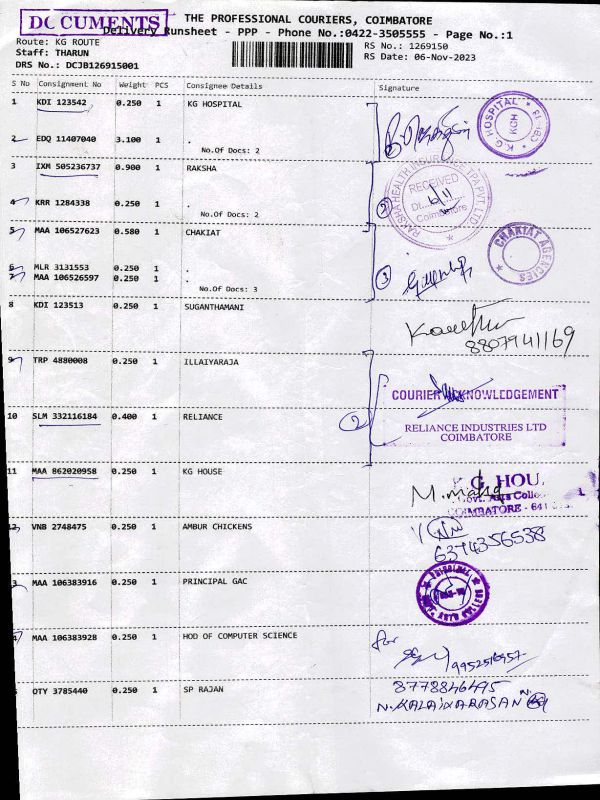 DOCUMENTS
THE PROFESSIONAL COURIERS, COIMBATORE
Delivery Runsheet - PPP - Phone No.:0422-3505555 - Page No.:1
Route: KG ROUTE
RS No.: 1269150
Staff: THARUN
RS Date: 06-Nov-2023
DRS No.: DCJB126915001
S No Consignment No Weight PCS Consignee Details Signature
1 KDI 123542 0.250 1 KG HOSPITAL
K.G HOSPITAL
KCH
CBE-18
2 EDQ 11407040 3.100 1 .
No.Of Docs: 2
3 IXM 505236737 0.900 1 RAKSHA
RECEIVED
6/11
Coimbatore
4 KRR 1284338 0.250 1 .
No.Of Docs: 2
2
5 MAA 106527623 0.580 1 CHAKIAT
CHAKIAT AGENCIES
6 MLR 3131553 0.250 1 .
7 MAA 106526597 0.250 1 .
No.Of Docs: 3
3
8 KDI 123513 0.250 1 SUGANTHAMANI
8807941169
9 TRP 4880008 0.250 1 ILLAIYARAJA
COURIER ACKNOWLEDGEMENT
10 SLM 332116184 0.400 1 RELIANCE
2
RELIANCE INDUSTRIES LTD
COIMBATORE
11 MAA 862020958 1 KG HOUSE
K.G. HOU
Govt. Arts Colle
COIMBATORE - 641
12 VNB 2748475 0.250 1 AMBUR CHICKENS
6374356538
3 MAA 106383916 0.250 1 PRINCIPAL GAC
PRINCIPAL
MAA 106383928 0.250 1 HOD OF COMPUTER SCIENCE
for
QTY 3785440 0.250 1 SP RAJAN
8778846495
N.KALAIYARASAN